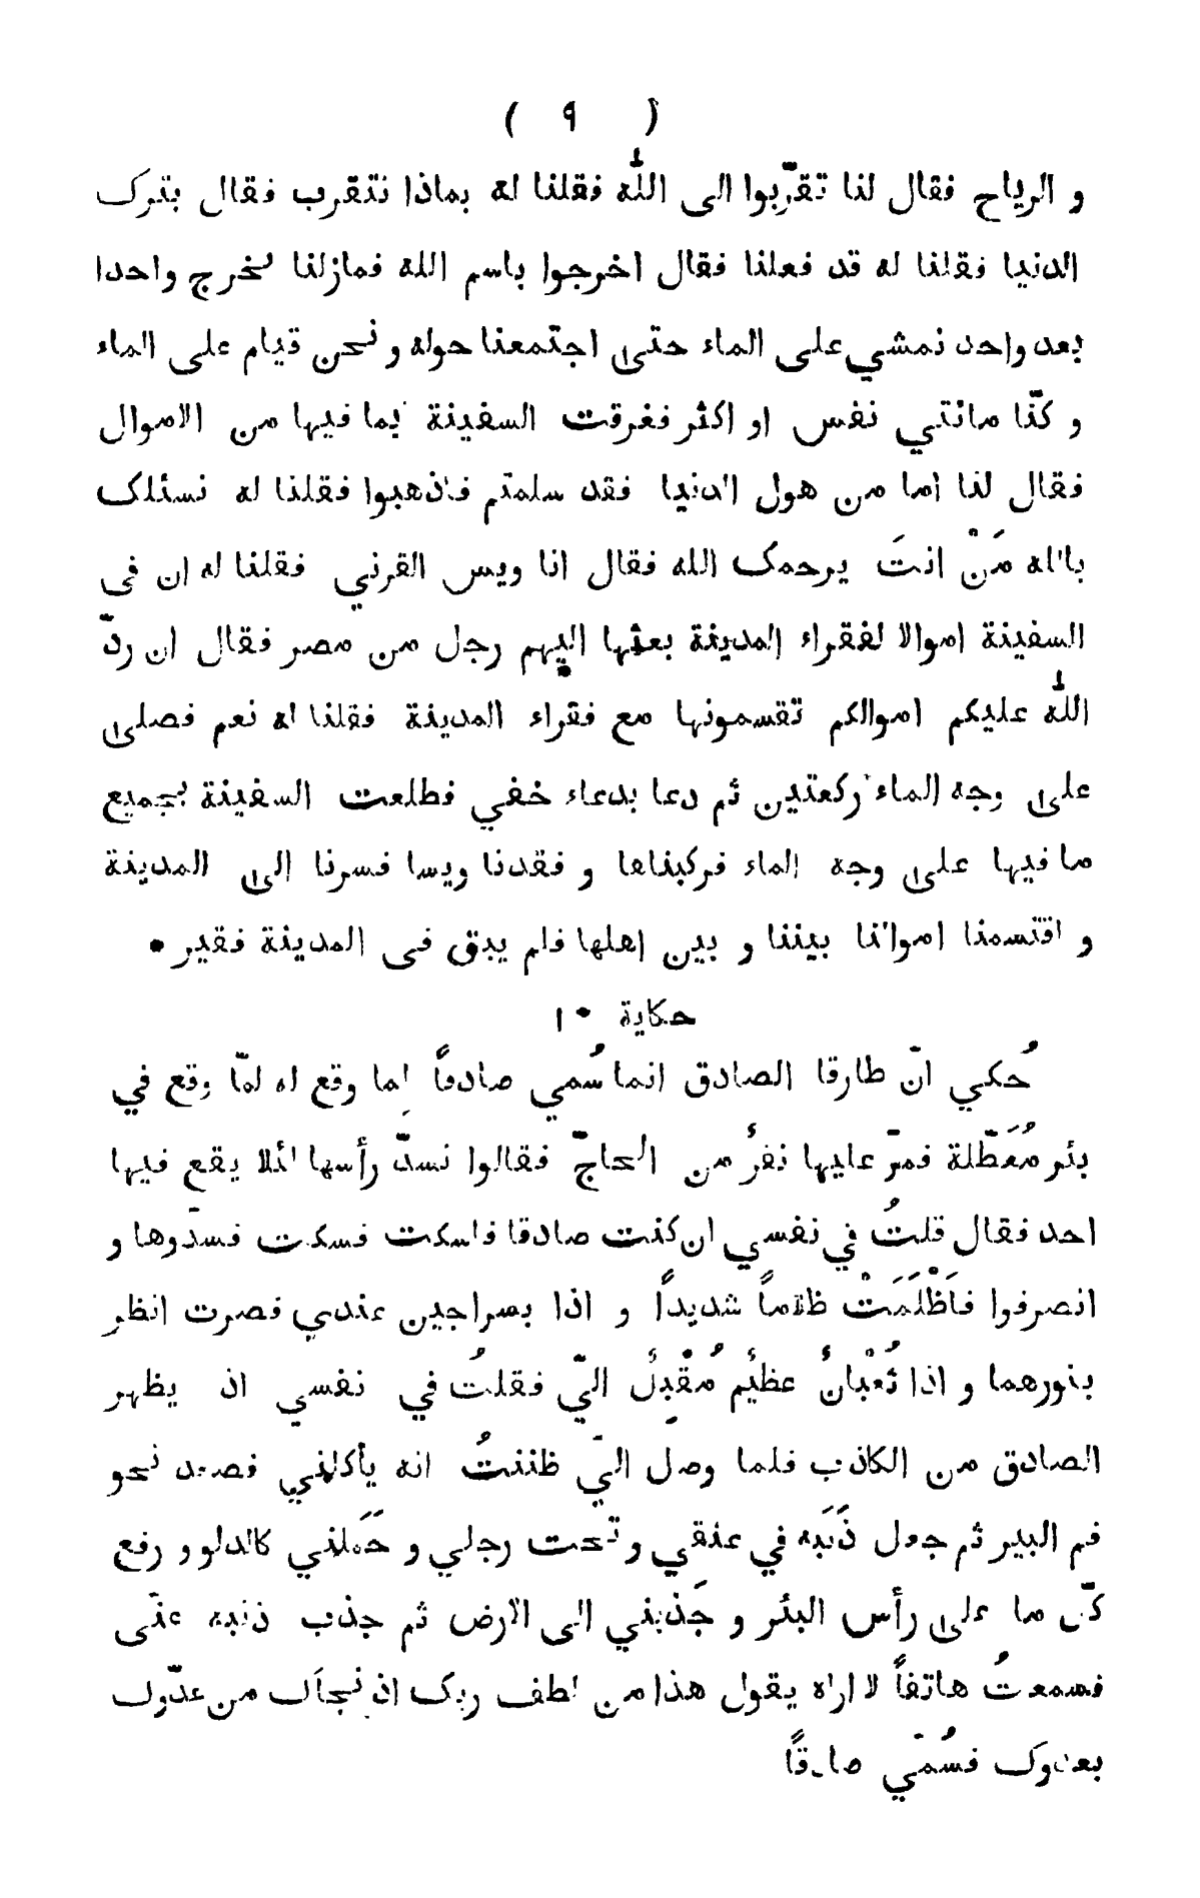 ( ٩ )
و الرياح فقال لنا تقرّبوا الى اللّٰه فقلنا له بماذا نتقرب فقال بترك
الدنيا فقلنا له قد فعلنا فقال اخرجوا باسم الله فمازلنا نخرج واحدا
بعد واحد نمشي على الماء حتى اجتمعنا حوله و نحن قيام على الماء
و كنّا مائتي نفس او اكثر فغرقت السفينة بما فيها من الاموال
فقال لنا اما من هول الدنيا فقد سلمتم فاذهبوا فقلنا له نسئلك
بالله مَنْ انتَ يرحمك الله فقال انا ويس القرني فقلنا له ان فى
السفينة اموالا لفقراء المدينة بعثها اليهم رجل من مصر فقال ان ردّ
اللّٰه عليكم اموالكم تقسمونها مع فقراء المدينة فقلنا له نعم فصلى
على وجه الماء ركعتين ثم دعا بدعاء خفي فطلعت السفينة بجميع
ما فيها على وجه الماء فركبناها و فقدنا ويسا فسرنا الى المدينة
و اقتسمنا اموالنا بيننا و بين اهلها فلم يبق فى المدينة فقير •
حكاية ١٠
حُكي انّ طارقا الصادق انما سُمي صادقاً لما وقع له لمّا وقع في
بئر مُعَطّلة فمرّ عليها نفرٌ من الحاجّ فقالوا نسدّ رأسها لئلا يقع فيها
احد فقال قلتُ في نفسي ان كنت صادقا فاسكت فسكت فسدّوها و
انصرفوا فاَظْلَمَتْ ظلاماً شديداً و اذا بسراجين عندي فصرت انظر
بنورهما و اذا ثُعْبانٌ عظيمٌ مُقْبِلٌ اليّ فقلتُ في نفسي اذ يظهر
الصادق من الكاذب فلما وصل اليّ ظننتُ انه يأكلني فصعد نحو
فم البير ثم جعل ذَنَبه في عنقي و تحت رجلي و حَمَلني كالدلو و رفع
كلّ ما على رأس البئر و جَذبني الى الارض ثم جذب ذنبه عنّى
فسمعتُ هاتفاً لا اراه يقول هذا من لطف ربك اذ نجاك من عدّوك
بعدوك فسُمّي صادقًا